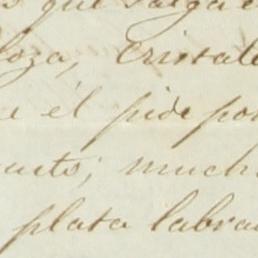 que salga
loza, cristale
él pide por
; much
plata labra